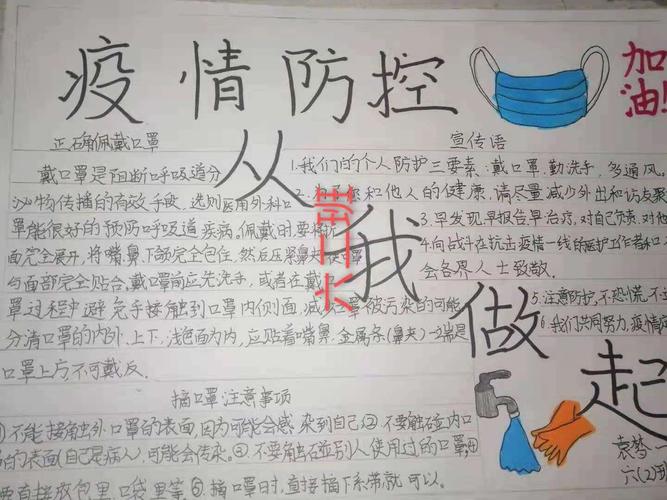 疫情防控
加油!
从我做起
正确佩戴口罩
戴口罩是阻断呼吸道分
泌物传播的有效手段,选则医用外科口
罩能很好的预防呼吸道疾病。佩戴时要将折
面完全展开,将嘴鼻、下颌完全包住,然后压紧鼻夹,使口罩
与面部完全贴合,戴口罩前应先洗手,或者在戴口
罩过程中避免手接触到口罩内侧面,减少口罩被污染的可能
分清口罩的内外、上下,浅色面为内,应贴着嘴鼻,金属条(鼻夹)一端是
口罩上方,不可戴反.
摘口罩注意事项
①不能接触外口罩的表面,因为可能会感染到自己②不要触碰内口
的表面(自己是病人)可能会传染.③不要触碰别人使用过的口罩④
要直接放包里、口袋里等⑤摘口罩时,直接摘下系带就可以.
宣传语
1.我们的个人防护三要素:戴口罩.勤洗手,多通风.
2.为了您和他人的健康,请尽量减少外出和访友聚
3.早发现,早报告,早治疗,对自己负责,对他
4.向战斗在抗击疫情一线的医护工作者和
会各界人士致敬.
5.注意防护,不恐慌,不
6.我们共同努力,疫情
袁梦一
六(2)班